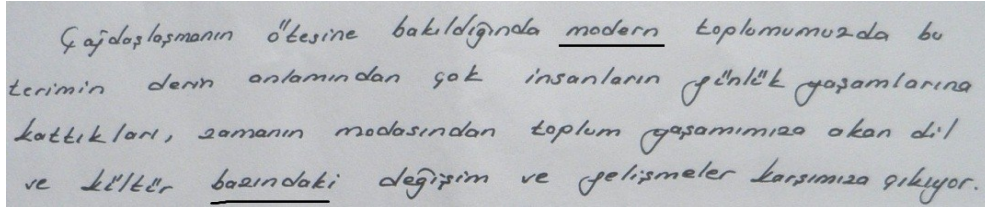 Çağdaşlaşmanın ötesine bakıldığında modern toplumumuzda bu
terimin derin anlamından çok insanların günlük yaşamlarına
kattıkları, zamanın modasından toplum yaşamımıza akan dil
ve kültür bazındaki değişim ve gelişmeler karşımıza çıkıyor.